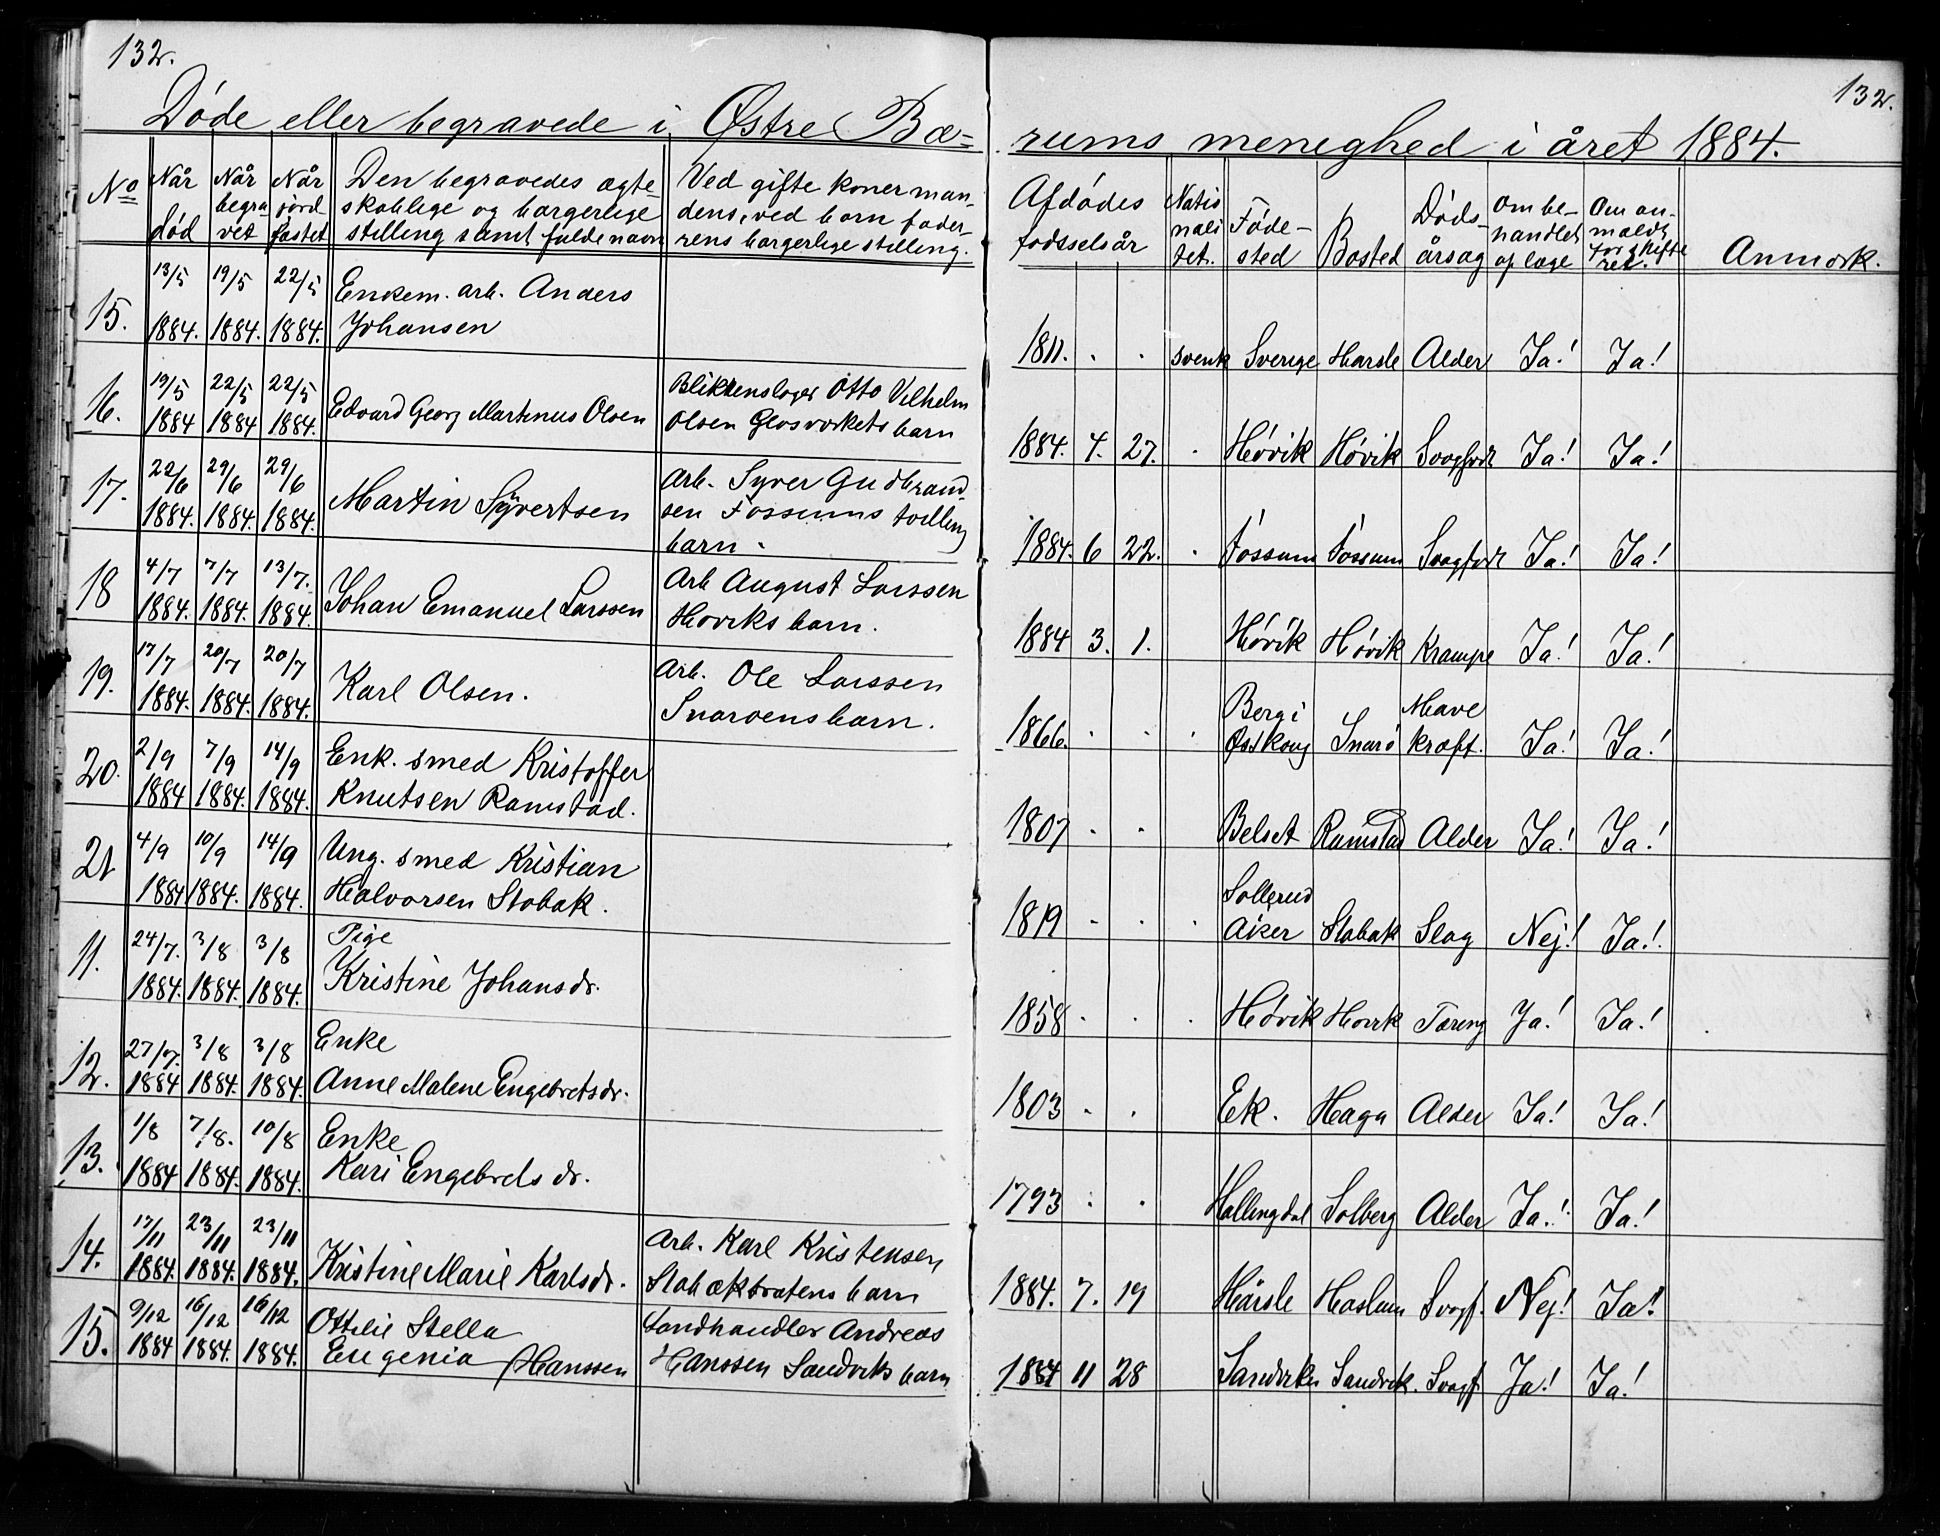 132.
132.
Døde eller begravede i Østre Bæ=
rums menighed i året 1884.
No
Når død
Når begra vet
Når jord fæstet
Den begravedes ægte-
skablige og borgerlige
stilling samt fulde navn
Ved gifte koner man-
dens, ved barn fader-
rens borgerlige stilling.
Afdødes fødsselsår
Natio nali tet.
Føde- sted
Bosted
Døds- årsag
Om be- handlet af læge
Om an- mældt for skifte ret.
Anmærk.
15. 13/5 1884. 19/5 1884. 22/5 1884. Enkem. arb. Anders
Johansen
1811. . . svensk Sverige Harsle Alder Ja! Ja!
16. 19/5 1884 22/5 1884 22/5 1884. Edvard Georg Martinus Olsen
Blikkenslager Otto Vilhelm
Olsen Glasværkets barn
1884. 4. 27. . Høvik Høvik Svaghedt Ja! Ja!
17. 22/6 1884. 29/6 1884. 29/6 1884. Martin Syvertsen
Arb. Syver Gudbrand-
sen Fossums tvilling
barn.
1884. 6 22. . Fossum Fossum Svaghedt Ja! Ja!
18 4/7 1884. 7/7 1884. 13/7. 1884. Johan Emanuel Larssen
Arb August Larssen
Høviks barn.
1884 3. 1. Høvik Høvik Krampe Ja! Ja!
19. 17/7 1884. 20/7 1884. 20/7 1884. Karl Olsen.
Arb. Ole Larssen
Snarøens barn.
1866. . . . Berg i Østkoug Snarø Mave kræft. Ja! Ja!
20. 2/9 1884 7/9 1884. 14/9 1884. Enk. smed Kristoffer
Knutsen Ramstad.
1807 . . Belset Ramstad Alder Ja! Ja!
21 4/9 1884 10/9 1884. 14/9 1884. Ung. smed Kristian
Halvorsen Stabæk.
1819 . . . Sollerud Aker Stabæk Slag Nej! Ja!
11. 24/7. 1884. 3/8 1884. 3/8 1884. Pige
Kristine Johansdr.
1858 . . . Høvik Høvik Tæring Ja! Ja!
12. 27/7. 1884 3/8 1884. 3/8 1884. Enke
Anne Malene Engebretsdr.
1803 . . Ek. Haga Alder Ja! Ja!
13. 1/8 1884 7/8. 1884. 10/8 1884. Enke
Kari Engebrets dr.
1793 . . Hallingdal Solberg Alder Ja! Ja!
14. 17/11 1884. 23/11 1884. 23/11 1884. Kristine Marie Karlsdr.
Arb. Karl Kristensen
Stabækbråtens barn
1884. 7. 19 Hårsle Haslum Svagh. Nej! Ja!
15. 9/12 1884 16/12 1884. 16/12 1884. Ottilie Stella
Eugenia Hanssen
Landhandler Andreas
Hanssen Sandviks barn
1884 11 28 Sandviken Sandvik. Svagh. Ja! Ja!